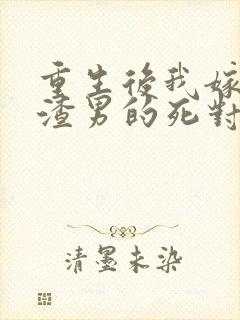 重生後我嫁
渣男的死對
清墨未染